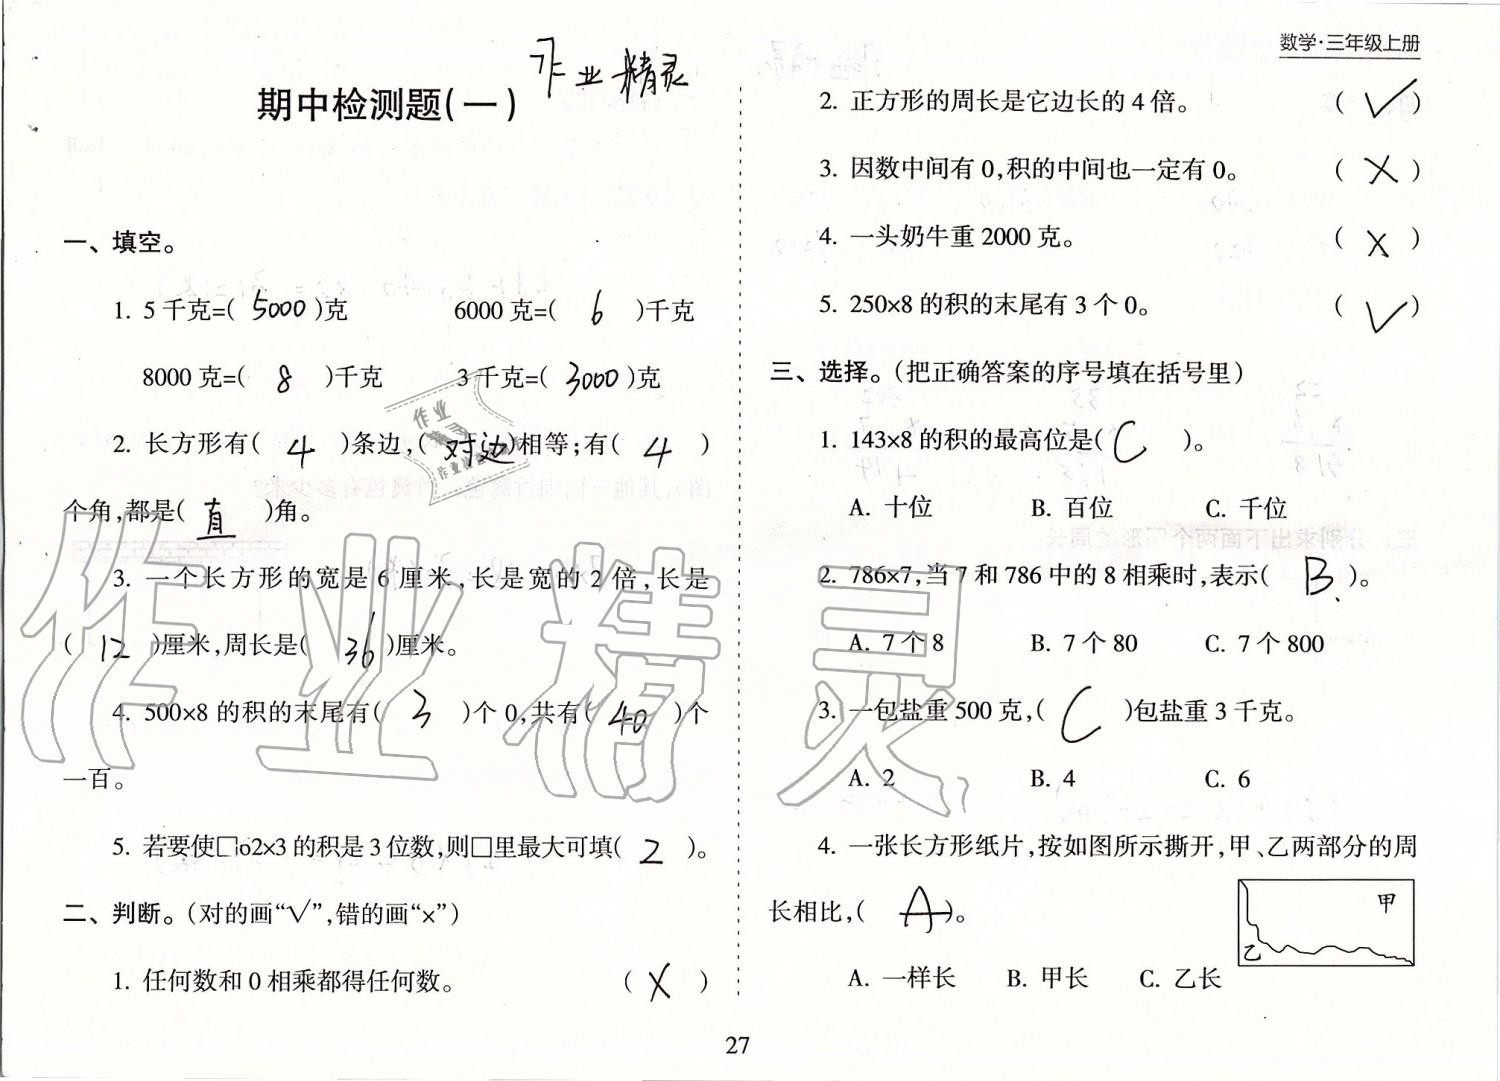 数学·三年级上册
作业精灵
期中检测题(一)
一、填空。
1. 5千克=( 5000 )克 6000克=( 6 )千克
8000克=( 8 )千克 3千克=( 3000 )克
2. 长方形有( 4 )条边,( 对边 )相等;有( 4 )
个角,都是( 直 )角。
3. 一个长方形的宽是6厘米,长是宽的2倍,长是
( 12 )厘米,周长是( 36 )厘米。
4. 500×8的积的末尾有( 3 )个0,共有( 40 )个
一百。
5. 若要使□02×3的积是3位数,则□里最大可填( 2 )。
二、判断。(对的画“√”,错的画“×”)
1. 任何数和0相乘都得任何数。 ( × )
2. 正方形的周长是它边长的4倍。 ( √ )
3. 因数中间有0,积的中间也一定有0。 ( × )
4. 一头奶牛重2000克。 ( × )
5. 250×8的积的末尾有3个0。 ( √ )
三、选择。(把正确答案的序号填在括号里)
1. 143×8的积的最高位是( C )。
A. 十位 B. 百位 C. 千位
2. 786×7,当7和786中的8相乘时,表示( B )。
A. 7个8 B. 7个80 C. 7个800
3. 一包盐重500克,( C )包盐重3千克。
A. 2 B. 4 C. 6
4. 一张长方形纸片,按如图所示撕开,甲、乙两部分的周
长相比,( A )。
甲
乙
A. 一样长 B. 甲长 C. 乙长
27
作业精灵
作业
精灵